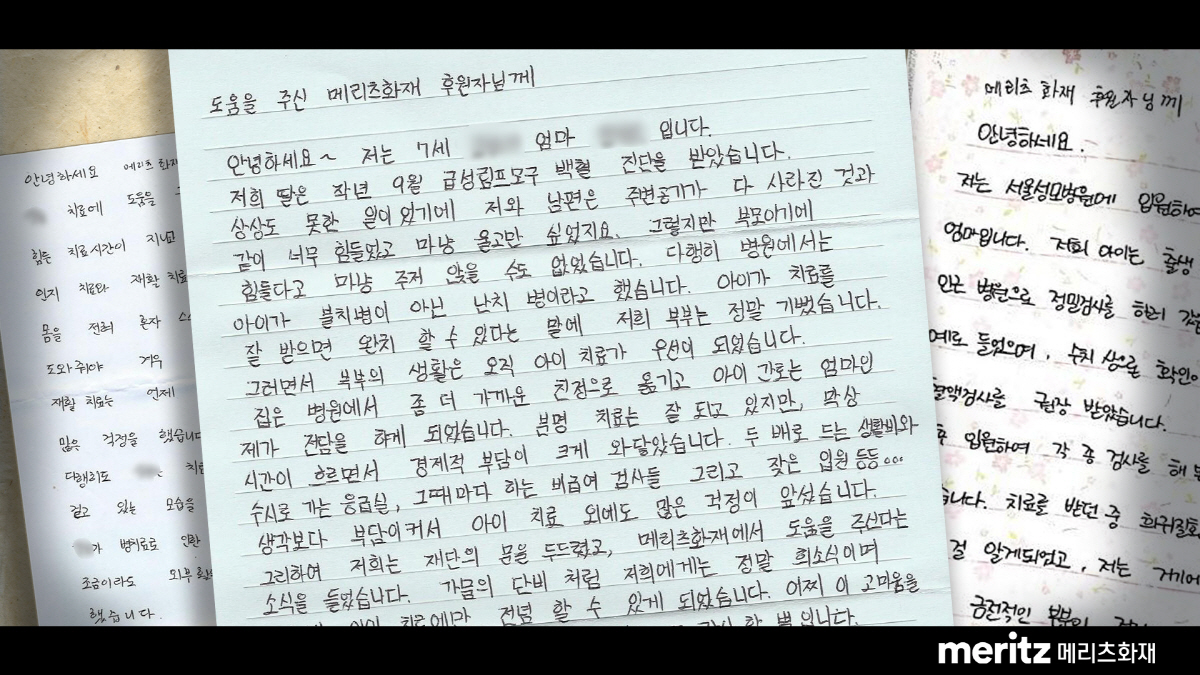 안녕하세요 메리츠 화재
치료에 도움을
힘든 치료시간이 지난
인지 치료와 재활 치료
몸을 전혀 혼자
도와줘야 겨우
재활 치료는 언제
많은 걱정을 했습니다
다행히도 치료
걷고 있는 모습을
가 병치료로 인한
조금이라도 외부
했습니다.
도움을 주신 메리츠화재 후원자님께
안녕하세요~ 저는 7세 엄마 입니다.
저희 딸은 작년 9월 급성림프모구 백혈 진단을 받았습니다.
상상도 못한 일이었기에 저와 남편은 주변공기가 다 사라진 것과
같이 너무 힘들었고 마냥 울고만 싶었지요. 그렇지만 부모이기에
힘들다고 마냥 주저 앉을 수도 없었습니다. 다행히 병원에서는
아이가 불치병이 아닌 난치 병이라고 했습니다. 아이가 치료를
잘 받으면 완치 할 수 있다는 말에 저희 부부는 정말 기뻤습니다.
그러면서 부부의 생활은 오직 아이 치료가 우선이 되었습니다.
집은 병원에서 좀 더 가까운 친정으로 옮기고 아이 간호는 엄마인
제가 전담을 하게 되었습니다. 분명 치료는 잘 되고 있지만, 막상
시간이 흐르면서 경제적 부담이 크게 와닿았습니다. 두 배로 드는 생활비와
수시로 가는 응급실, 그때마다 하는 비급여 검사들 그리고 잦은 입원 등등...
생각보다 부담이커서 아이 치료 외에도 많은 걱정이 앞섰습니다.
그리하여 저희는 재단의 문을 두드렸고, 메리츠화재에서 도움을 주신다는
소식을 들었습니다. 가뭄의 단비 처럼 저희에게는 정말 희소식이며
아이 치료에만 전념 할 수 있게 되었습니다. 어찌 이 고마움을
감사 할 뿐입니다.
메리츠 화재 후원자님께
안녕하세요.
저는 서울성모병원에 입원하여
엄마입니다. 저희 아이는 출생
인근 병원으로 정밀검사를 하러 갔
예로 들었으며, 수치 상으로 확인이
혈액검사를 권장 받았습니다.
입원하여 각 종 검사를 해
습니다. 치료를 받던 중 희귀질환
걸 알게되었고, 저는 거기에
금전적인 부분이
meritz 메리츠화재